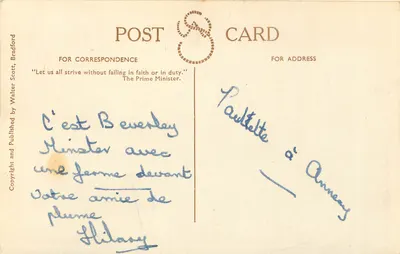 POST CARD
FOR CORRESPONDENCE
FOR ADDRESS
"Let us all strive without failing in faith or in duty."
The Prime Minister.
Copyright and Published by Walter Scott, Bradford
C'est Beverley
Minster avec
une ferme devant
Votre amie de
plume
Hilary
Paulette à Annecy